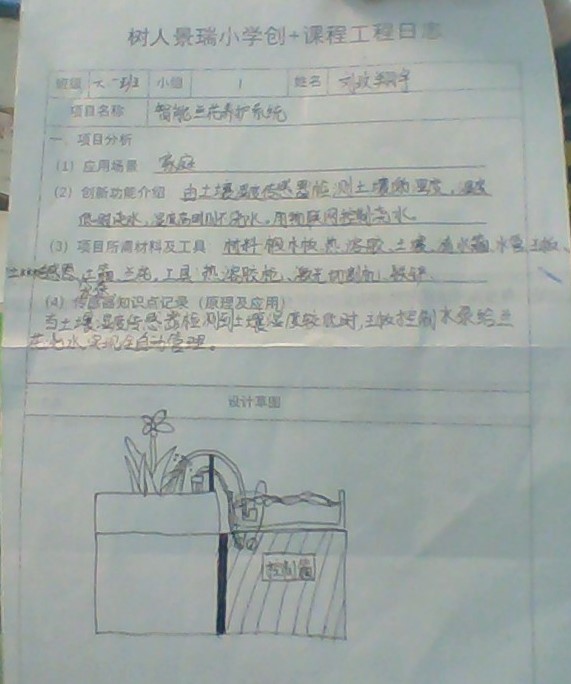 树人景瑞小学创+课程工程日志
班级 六一班 小组 1 姓名
项目名称 智能兰花养护系统
一 项目分析
(1) 应用场景 家庭
(2) 创新功能介绍 由土壤湿度传感器检测土壤的湿度,湿度
低时浇水,湿度高时则不浇水。用物联网控制浇水。
(3) 项目所需材料及工具 材料 木板 热溶胶 土壤 水箱 水管 主板、
兰花 工具 热溶胶枪、激光切割机
(4) 传感器知识点记录(原理及应用)
当土壤湿度传感器检测到土壤湿度较低时,主板控制水泵给兰
花浇水实现全自动管理。
设计草图
控制箱